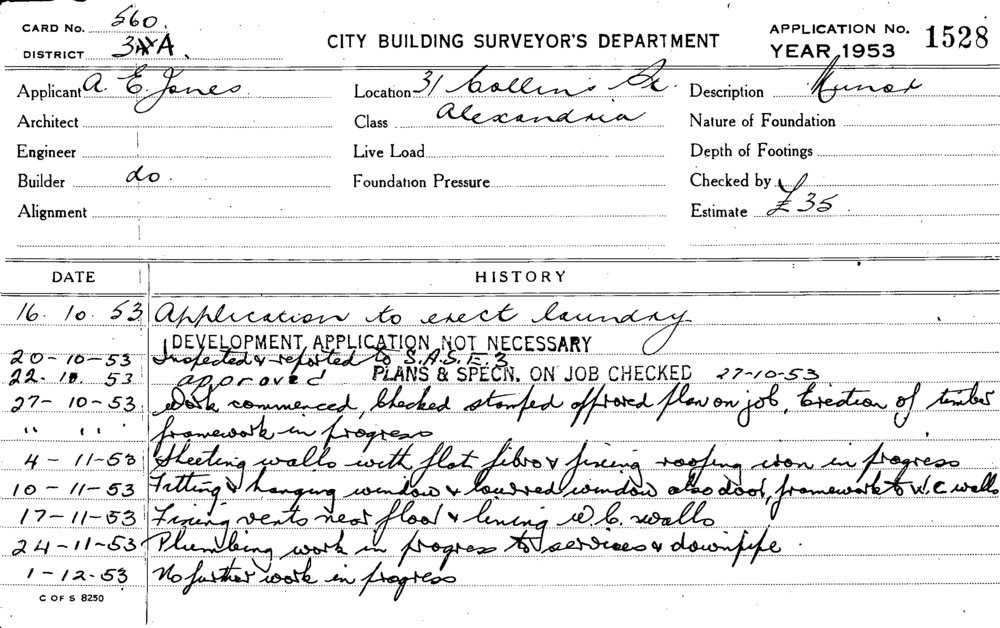 CARD No. 560.
DISTRICT 3A.
CITY BUILDING SURVEYOR'S DEPARTMENT
APPLICATION No. 1528
YEAR 1953
Applicant A. E. Jones.
Location 31 Collins St.
Description Minor
Architect
Class Alexandria
Nature of Foundation
Engineer
Live Load
Depth of Footings
Builder do.
Foundation Pressure
Checked by
Alignment
Estimate £35.
DATE HISTORY
16. 10. 53 Application to erect laundry
DEVELOPMENT APPLICATION NOT NECESSARY
20-10-53 Inspected & reported to S.A.S.E.3
22. 10. 53 approved PLANS & SPECN. ON JOB CHECKED 27-10-53
27-10-53 Work commenced, Checked stamped approved plan on job, Erection of timber
" " " framework in progress
4-11-53 Sheeting walls with flat fibro & fixing roofing iron in progress
10-11-53 Fitting & hanging window & louvred window also door, framework to W.C walls
17-11-53 Fixing vents near floor & lining W.C. walls
24-11-53 Plumbing work in progress to services & downpipe.
1-12-53 No further work in progress
C OF S 8250